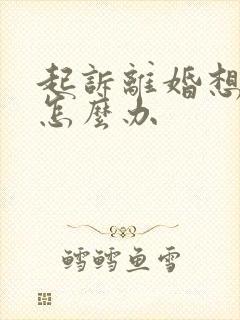 起訴離婚想
怎麼办
鱈鱈鱼雪